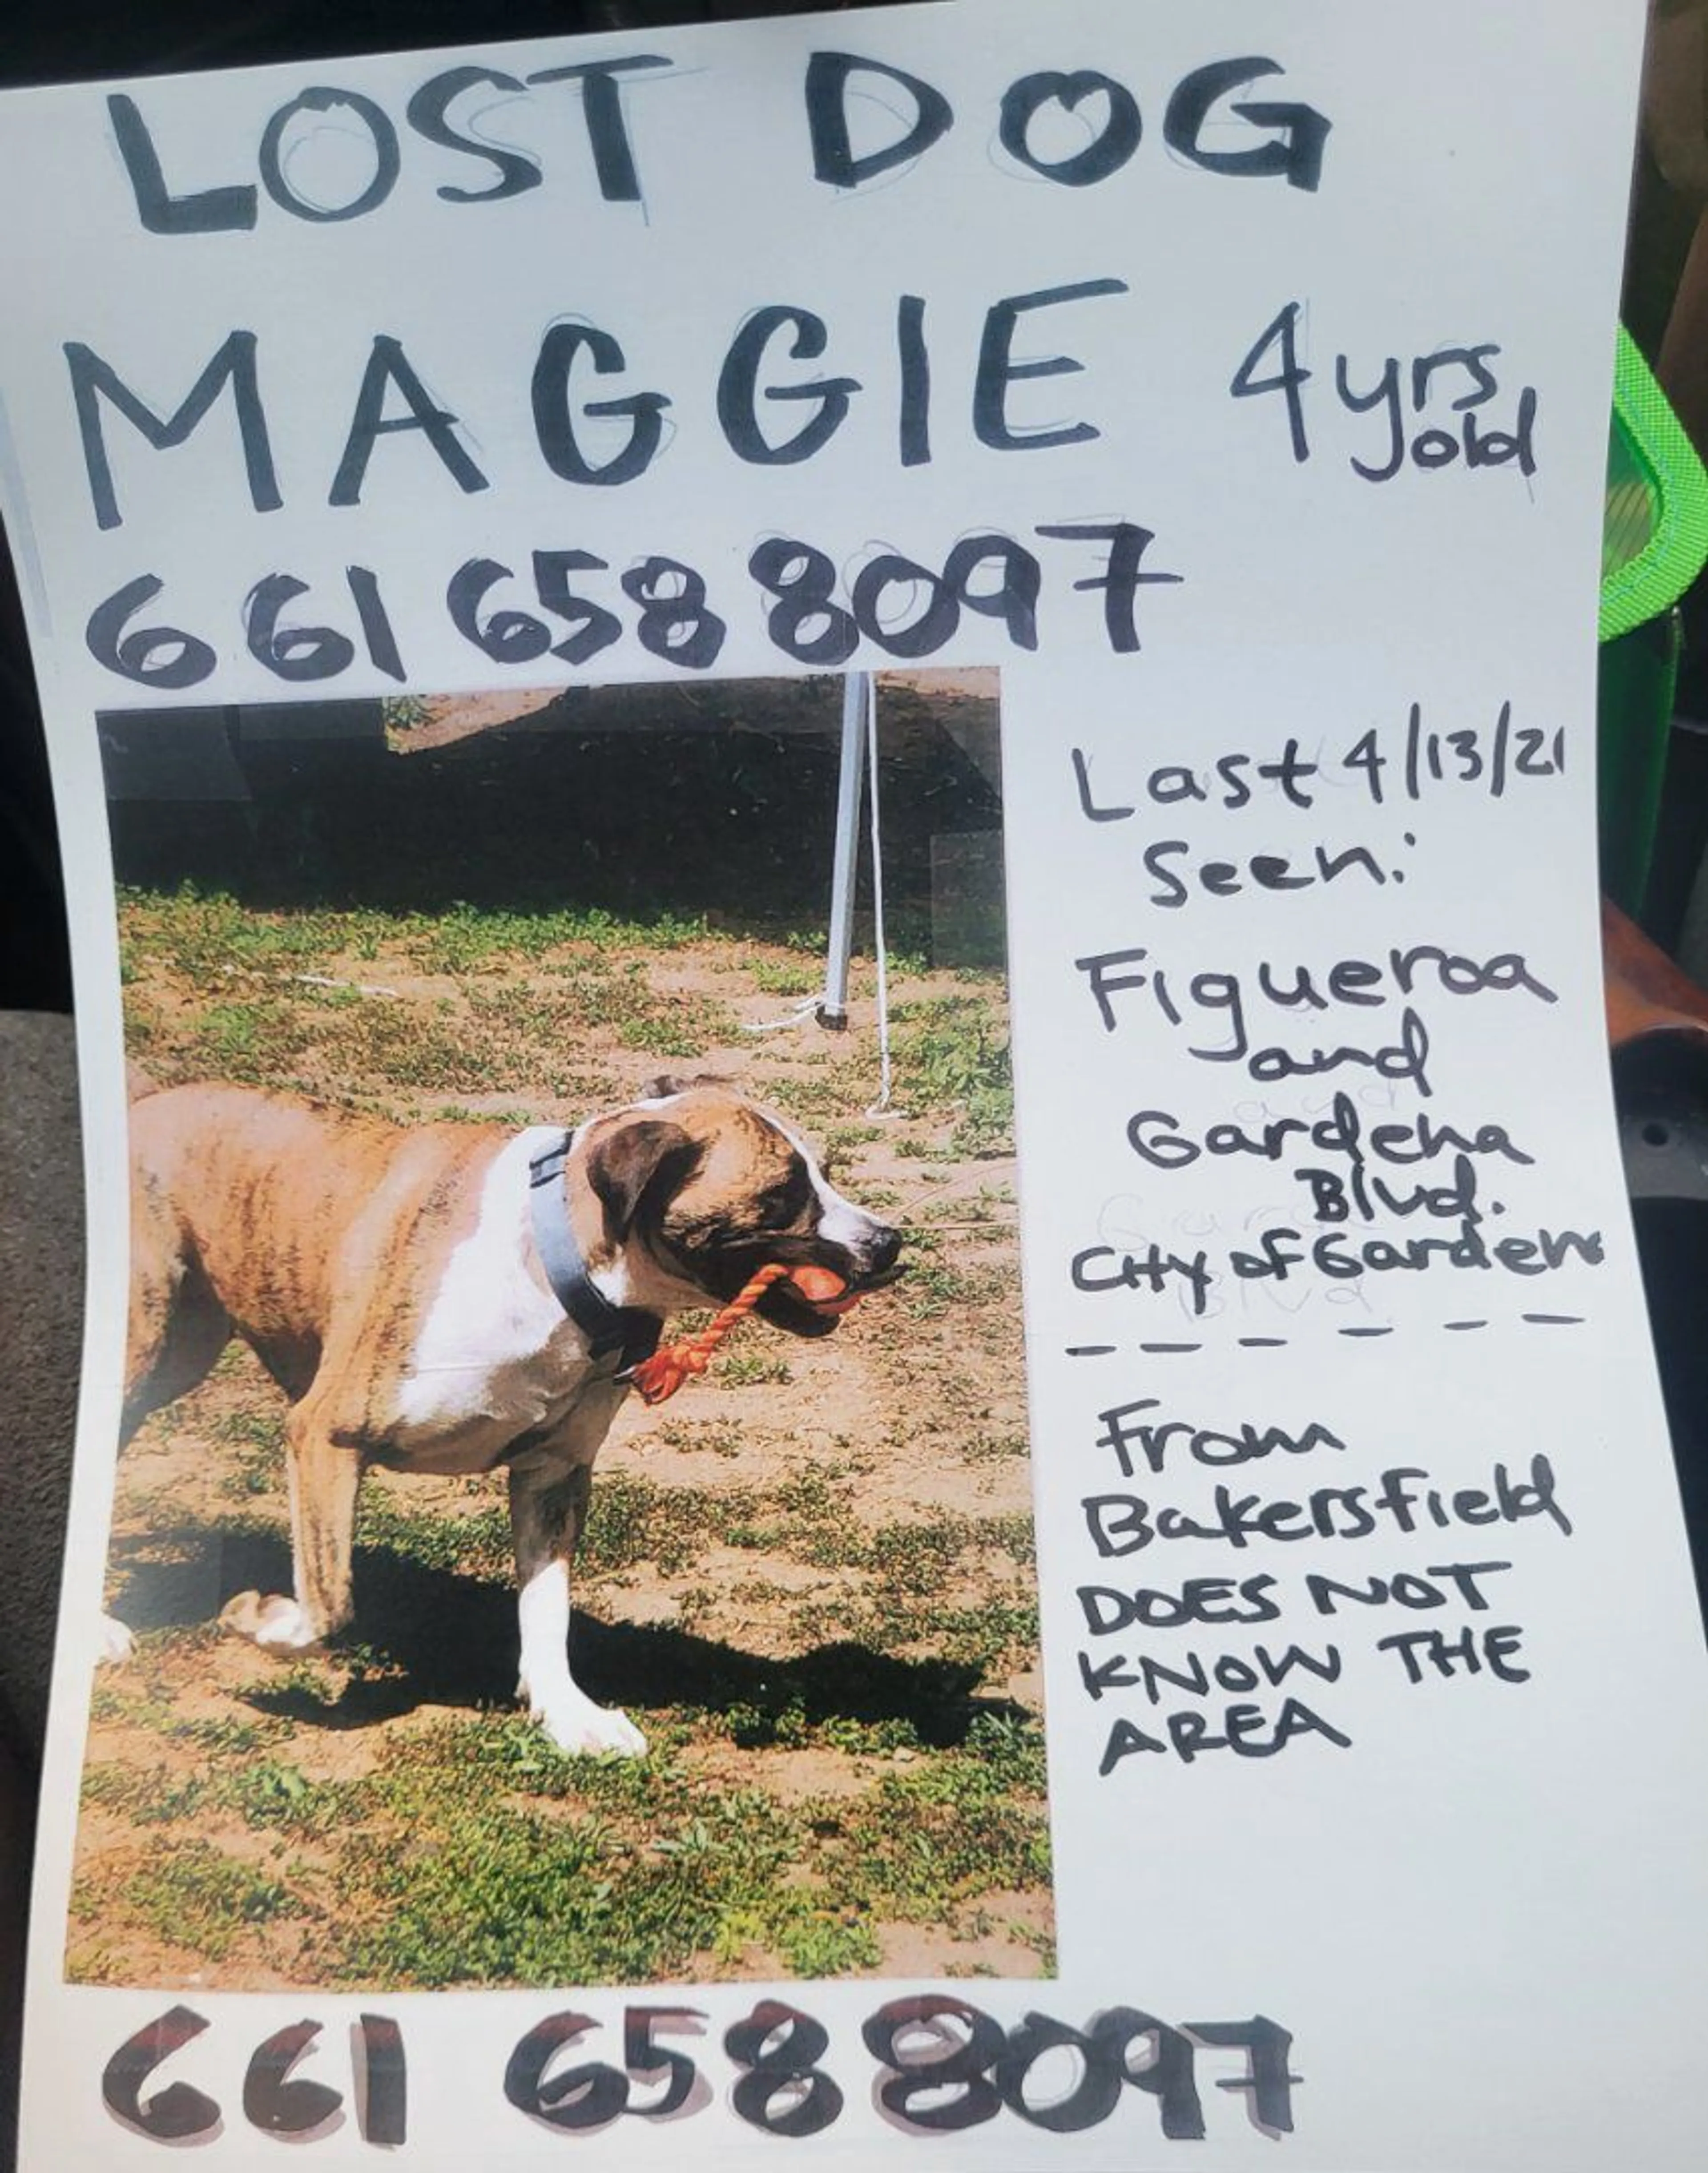 LOST DOG
MAGGIE 4 yrs old
661 658 8097
Last 4/13/21
Seen:
Figueroa
and
Gardena
Blvd.
City of Gardena
From
Bakersfield
DOES NOT
KNOW THE
AREA
661 658 8097